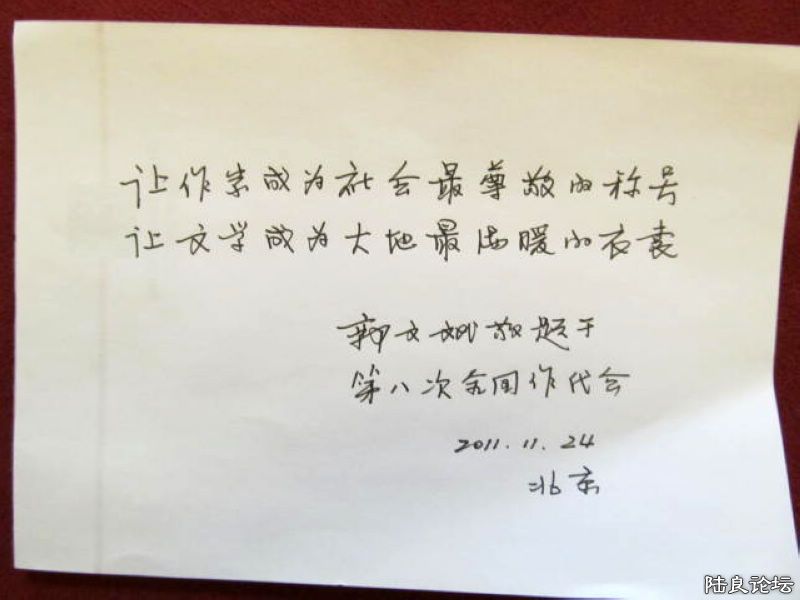 让作家成为社会最尊敬的称号
让文学成为大地最温暖的衣裳
郭文斌敬题于
第八次全国作代会
2011.11.24
北京
陆良论坛